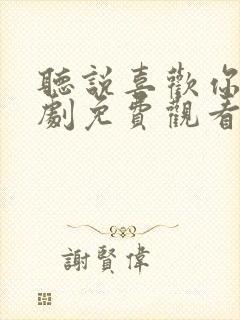 聽說喜歡你
劇免費觀看
謝賢偉